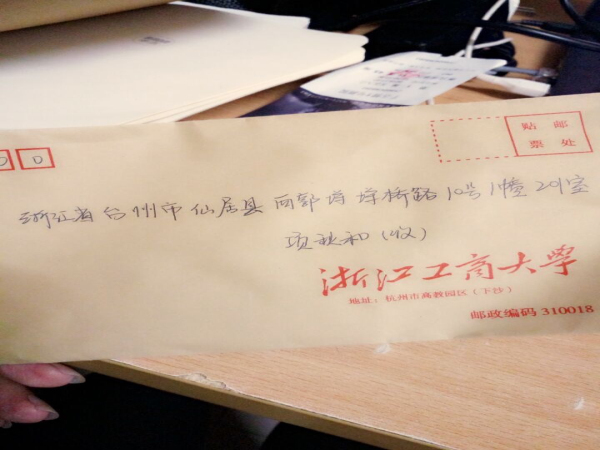 0 0
贴 邮
票 处
浙江省台州市仙居县西郭垟垟桥路10号1幢201室
项秋和(收)
浙江工商大學
地址:杭州市高教园区(下沙)
邮政编码 310018